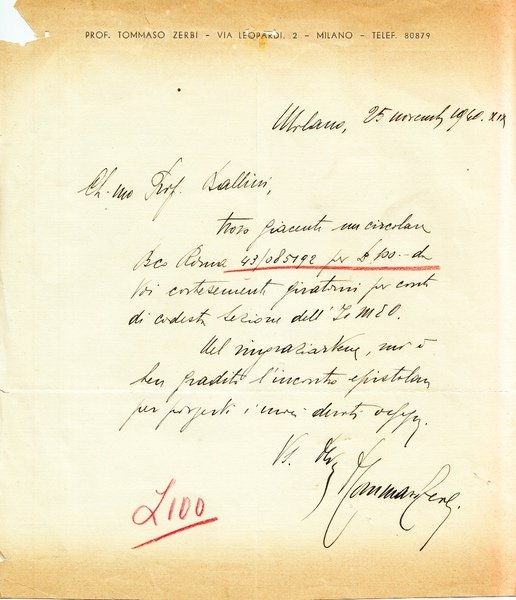 PROF. TOMMASO ZERBI - VIA LEOPARDI, 2 - MILANO - TELEF. 80879
Milano, 25 novemb 1940. XIX
Ch.mo Prof. Ballini,
trovo giacente un circolare
Bco Roma 43/085192 per £ 100.- da
Voi cortesemente giratomi per conto
di codesta Sezione dell'IsMEO.
Nel ringraziarVene, mi è
ben gradito l'incontro epistolare
per porgerVi i miei devoti ossequi.
Vs.
Tommaso Zerbi.
£100